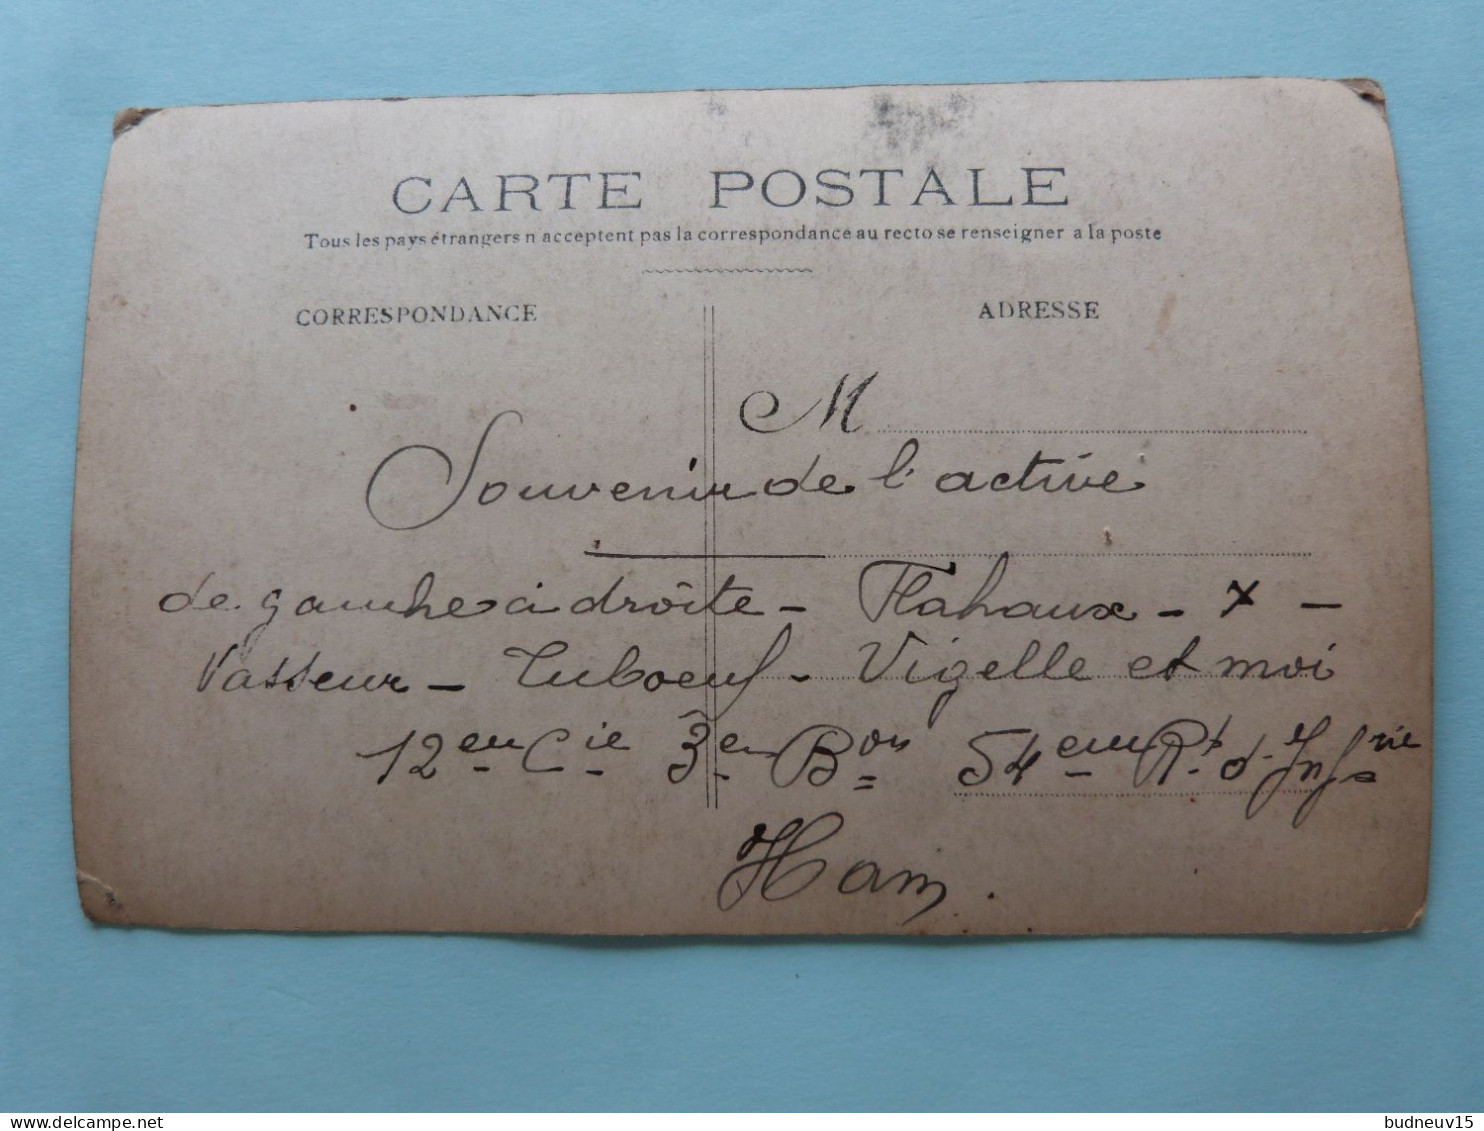 CARTE POSTALE
Tous les pays étrangers n acceptent pas la correspondance au recto se renseigner a la poste
CORRESPONDANCE
ADRESSE
M
Souvenir de l'active
de gauche à drôite - Flahaux - x -
Vasseur - Tuboeuf - Vigelle et moi
12em Cie 3em Bon 54em Rt d'Infrie
Ham.
budneuv15